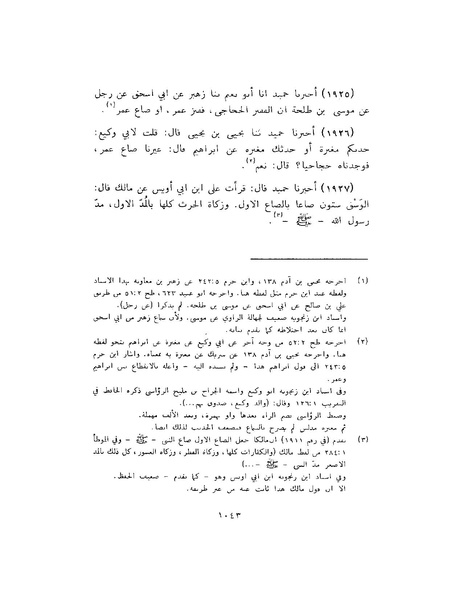 (١٩٢٥) أخبرنا حميد انا أبو نعيم ثنا زهير عن ابي اسحق عن رجل
عن موسى بن طلحة ان القفيز الحجاجي، قفيز عمر، او صاع عمر(١).
(١٩٢٦) أخبرنا حميد ثنا يحيى بن يحيى قال: قلت لابي وكيع:
حدثكم مغيرة أو حدثك مغيرة عن ابراهيم قال: عيرنا صاع عمر،
فوجدناه حجاجيا؟ قال: نعم(٢).
(١٩٢٧) أخبرنا حميد قال: قرأت على ابن ابي أويس عن مالك قال:
الوَسْق ستون صاعا بالصاع الاول. وزكاة الحرث كلها بالمُدّ الاول، مدّ
رسول الله - ﷺ -(٣).
(١) اخرجه يحيى بن آدم ١٣٨، وابن حزم ٢٤٢:٥ عن زهير بن معاوية بهذا الاسناد
ولفظه عند ابن حزم مثل لفظه هنا. واخرجه ابو عبيد ٦٢٣، طح ٥١:٢ من طريق
علي بن صالح عن ابي اسحق عن موسى بن طلحة. لم يذكرا (عن رجل).
واسناد ابن زنجويه ضعيف لجهالة الراوي عن موسى. ولأن سماع زهير من ابي اسحق
انما كان بعد اختلاطه كما تقدم بيانه.
(٢) اخرجه طح ٥٢:٢ من وجه آخر عن ابي وكيع عن مغيرة عن ابراهيم بنحو لفظه
هنا. واخرجه يحيى بن آدم ١٣٨ عن شريك عن مغيرة به بمعناه. واشار ابن حزم
٢٤٣:٥ الى قول ابراهيم هذا - ولم يسنده اليه - واعله بالانقطاع بين ابراهيم
وعمر.
وفي اسناد ابن زنجويه ابو وكيع واسمه الجراح بن مليح الرؤاسي ذكره الحافظ في
التقريب ١٢٦:١ وقال: (والد وكيع، صدوق يهم...).
وضبط الرؤاسي بضم الراء بعدها واو بهمزة، وبعد الألف مهملة.
ثم مغيرة مدلس لم يصرح بالسماع فيضعف الحديث لذلك ايضا.
(٣) تقدم (في رقم ١٩١١) ان مالكا جعل الصاع الاول صاع النبي - ﷺ - وفي الموطأ
٢٨٤:١ من لفظ مالك (والكفارات كلها، وزكاة الفطر، وزكاة العشور، كل ذلك بالمد
الاصغر مدّ النبي - ﷺ -...)
وفي اسناد ابن زنجويه ابن ابي اويس وهو - كما تقدم - ضعيف الحفظ.
الا ان قول مالك هذا ثابت عنه من غير طريقه.
١٠٤٣